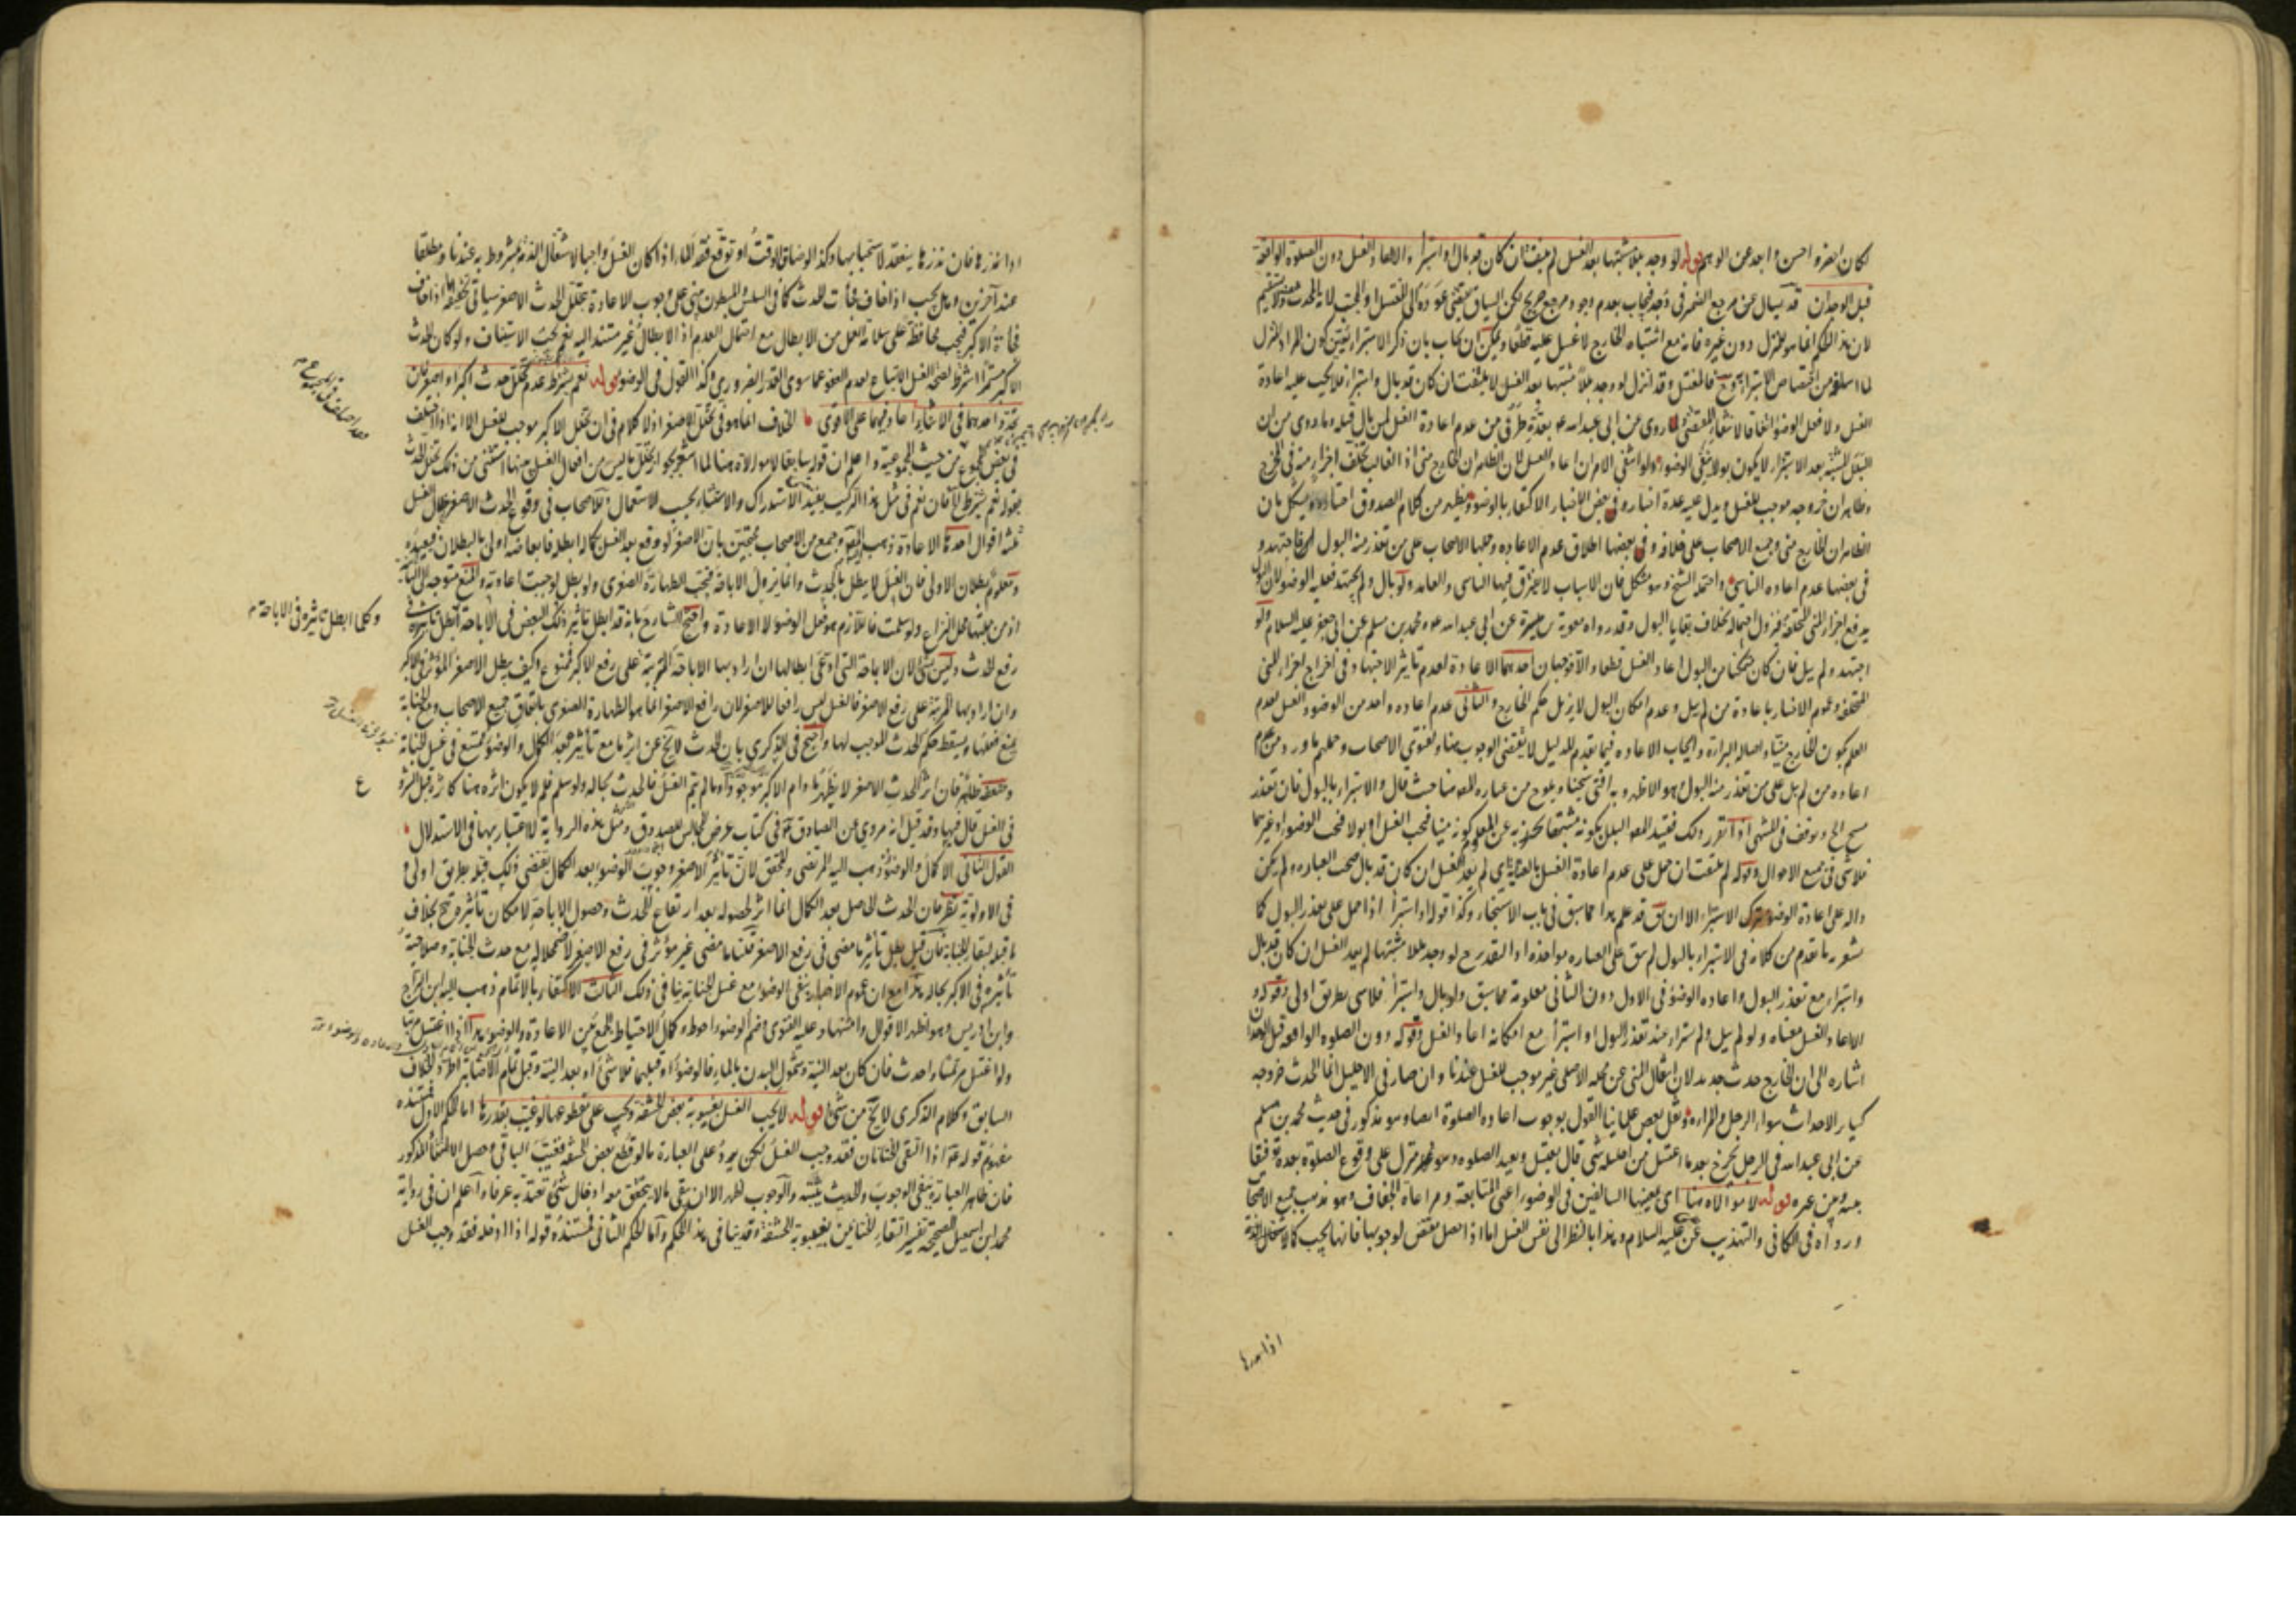 لكان اظهر واحسن وابعد عن الوهم قوله لو وجد بللا مشتبها بعد الغسل لم يلتفت ان كان قد بال او استبرأ والا اعاد الغسل دون الصلوة الواقعة
قبل الوجدان قد يسأل عن مرجع الضمير في وجد فيجاب بعدم وجود مرجع صريح لكن السياق يقتضي عوده الى المغتسل او الجنب لانه المحدث عنه
لان هذا الحكم انما هو للمنزل دون غيره فانه مع اشتباه الخارج لا غسل عليه قطعا ويمكن ان يجاب بان ذكر الاستبراء يعين كون المراد المنزل
لما اسلفه من اختصاص الاستبراء به فالمغتسل وقد انزل لو وجد بللا مشتبها بعد الغسل لا يلتفت ان كان قد بال واستبرأ فلا يجب عليه اعادة
الغسل ولا فعل الوضوء اتفاقا لانتفاء المقتضي لما روى عن ابي عبد الله ع بعدة طرق من عدم اعادة الغسل لمن بال قبله وما روى من ان
البلل المشتبه بعد الاستبراء لا يكون بولا ينقض الوضوء ولو انتفى الامران اعاد الغسل لان الظاهر ان الخارج مني اذ الغالب تخلف اجزاء منه في المخرج
وظاهر ان خروجه موجب للغسل ويدل عليه عدة اخبار وفي بعض الاخبار الاكتفاء بالوضوء ويظهر من كلام الصدوق اختياره ويشكل بان
الظاهر ان الخارج مني وجميع الاصحاب على خلافه وفي بعضها اطلاق عدم الاعادة وحملها الاصحاب على من تعذر منه البول
في بعضها عدم اعادة الناسي واحتمله الشيخ وهو مشكل فان الاسباب لا يفترق فيها الناسي والعامد ولو بال ولم يجتهد فعليه الوضوء لان البول
يدفع اجزاء المني المتخلفة فيزول احتماله بخلاف بقايا البول وقد رواه معوية بن ميسرة عن ابي عبد الله ع ومحمد بن مسلم عن ابي جعفر عليه السلام ولو
اجتهد ولم يبل فان كان متمكنا من البول اعاد الغسل قطعا والا فوجهان احدهما الاعادة لعدم تأثير الاجتهاد في اخراج اجزاء المني
المتخلفة وعموم الاخبار باعادة من لم يبل وعدم امكان البول لا يزيل حكم الخارج والثاني عدم اعادة واحد من الوضوء والغسل لعدم
العلم بكون الخارج منيا واصالة البراءة وايجاب الاعادة فيما تقدم للدليل لا يقتضي الوجوب هنا ولفتوى الاصحاب وحملهم ما ورد من عدم
اعادة من لم يبل على من تعذر منه البول وهو الاظهر وبه افتى شيخنا ويلوح من عبارة المصنف هنا حيث قال والاستبراء بالبول فان تعذر
مسح الخ وتوقف في المنتهى اذا تقرر ذلك فتقييد المصنف البلل بكونه مشتبها يحترز به عن المعلوم كونه منيا فيجب الغسل او بولا فيجب الوضوء او غيرهما
فلا شيء في جميع الاحوال وقوله لم يلتفت ان حمل على عدم اعادة الغسل بالعناية اي لم يعد الغسل ان كان قد بال صحت العبارة ولم يكن
دالة على اعادة الوضوء بترك الاستبراء الا انه قد علم هذا مما سبق في باب الاستنجاء وكذا قوله او استبرأ اذا حمل على تعذر البول كما
يشعر به ما تقدم من كلامه في الاستبراء بالبول لم يبق على العبارة مؤاخذة اذ التقدير ح لو وجد بللا مشتبها لم يعد الغسل ان كان قد بال
واستبرأ مع تعذر البول واعادة الوضوء في الاول دون الثاني معلومة مما سبق ولو بال واستبرأ فلا شيء بطريق اولى وقوله
والا اعاد الغسل معناه ولو لم يبل ولم يستبرأ عند تعذر البول او استبرأ مع امكانه اعاد الغسل وقوله دون الصلوة الواقعة قبل الوجدان
اشارة الى ان الخارج حدث جديد لان انتقال المني عن محله الاصلي غير موجب للغسل عندنا وان صار في الاحليل انما الحدث خروجه
كسائر الاحداث سواء الرجل والمرأة ونقل بعض علمائنا القول بوجوب اعادة الصلوة ايضا وهو مذكور في حديث محمد بن مسلم
عن ابي عبد الله في الرجل يخرج بعد ما اغتسل من احليله شيء قال يغتسل ويعيد الصلوة وهو منزل على وقوع الصلوة بعده توفيقا
بينه وبين غيره قوله لا موالاة هنا اي بمعنييها السالفين في الوضوء اعني المتابعة ومراعاة الجفاف وهو مذهب جميع الاصحاب
ورواه في الكافي والتهذيب عن عليه السلام وهذا بالنظر الى نفس الغسل اما اذا حصل مقتض لوجوبها فانها يجب كالاشتغال الذمة
اذا نذرها
اذا نذرها فان نذرها ينعقد لاستحبابها وكذا لو ضاق الوقت او توقع فقد الماء اذا كان الغسل واجبا لاشتغال الذمة بمشروط به عندنا ومطلقا
عند آخرين وهل يجب اذا خاف فجأت الحدث كما في السلس والمبطون مبني على وجوب الاعادة بتخلل الحدث الاصغر سيأتي تحقيقه اما اذا خاف
فجأة الاكبر فيجب محافظة على سلامة العمل من الابطال مع احتمال العدم اذ الابطال غير مستند اليه نعم يجب الاستيناف ولو كان الحدث
الاكبر مستمرا اشترط لصحة الغسل الاتباع لعدم العفو عما سوى القدر الضروري وكذا القول في الوضوء قوله نعم يشترط عدم تخلل حدث اكبر او اصغر فان
تجدد احدهما في الاثناء اعاد فيهما على الاقوى الخلاف انما هو في تخلل الاصغر اذ لا كلام في ان تخلل الاكبر موجب للغسل الا انه اذا اختلف
يقوله نعم يشترط الخ فان نعم في مثل هذا التركيب يفيد الاستدراك والاستثناء بحسب الاستعمال وللاصحاب في وقوع الحدث الاصغر خلال الغسل
ثلثة اقوال احدها الاعادة ذهب اليه وجمع من الاصحاب محتجين بان الاصغر لو وقع بعد الغسل بكماله ابطله فابعاضه اولى بالبطلان فيعيده
ومعلوم بطلان الاولى فان الغسل لا يبطل بالحدث وانما يزول الاباحة فيجب الطهارة الصغرى ولو بطل لوجبت اعادته والمنع متوجه الى الثانية
اذ من جملتها محل النزاع ولو سلمت فاللازم هو فعل الوضوء لا الاعادة واحتج الشارح بانه قد ابطل تأثير ذلك البعض في الاباحة ابطل تأثيره في
وكلما ابطل تأثيره في الاباحة م
رفع الحدث وليس بشيء لان الاباحة التي ادعى ابطالها ان اراد بها الاباحة المترتبة على رفع الاكبر فممنوع وكيف يبطل الاصغر المؤثر في الاكبر
وان اراد بها المترتبة على رفع الاصغر فالغسل ليس رافعا للاصغر لان رافع الاصغر انما هو الطهارة الصغرى باتفاق جميع الاصحاب ومع الجنابة
يمنع فعلها ويسقط حكم الحدث الموجب لها واحتج في الذكرى بان الحدث لا يخ عن اثر ما مع تأثيره بعد الكمال والوضوء ممتنع في غسل الجنابة
وضعفه ظاهر فان اثر الحدث الاصغر لا يظهر ما دام الاكبر موجودا وما لم يتم الغسل فالحدث بحاله ولو سلم فلم لا يكون اثره هنا كاثره قبل الشروع
ع
في الغسل قال فيها وقد قيل انه مروي عن الصادق ع في كتاب عرض المجالس للصدوق ومثل هذه الرواية لا اعتبار بها في الاستدلال
القول الثاني الاكمال والوضوء ذهب اليه المرتضى والمحقق لان تأثير الاصغر وجوب الوضوء بعد الكمال يقتضي ذلك قبله بطريق اولى و
في الاولوية نظر فان الحدث الحاصل بعد الكمال انما اثر لحصوله بعد ارتفاع الحدث وحصول الاباحة لامكان تأثيره ح بخلاف
ما قبله لبقاء الجنابة فان قيل يبطل تأثير ما مضى في رفع الاصغر قلنا ما مضى غير مؤثر في رفع الاصغر لاضمحلاله مع حدث الجنابة وصلاحية
تأثيره في الاكبر بحاله هذا مع ان عموم الاخبار ينفي الوضوء مع غسل الجنابة ينافي ذلك الثالث الاكتفاء بالاتمام ذهب اليه ابن البراج
وابن ادريس وهو اظهر الاقوال واشبهها وعليه الفتوى وضم الوضوء احوط وكمال الاحتياط بالجمع بين الاعادة والوضوء هذا اذا اغتسل مرتبا
ولو اغتسل مرتمسا واحدث فان كان بعد النية وشمول البدن بالماء فالوضوء او قبلهما فلا شيء او بعد النية وقبل تمام الاصابة اطرد الخلاف
السابق وكلام الذكرى لا يخ من شيء قوله لا يجب الغسل بغيبوبة بعض الحشفة ويجب على مقطوعها لو غيب بقدرها اما الحكم الاول فمستنده
مفهوم قوله ع اذا التقى الختانان فقد وجب الغسل لكن يرد على العبارة ما لو قطع بعض الحشفة فغيب الباقي وحصل الالتقاء المذكور
فان ظاهر العبارة ينفي الوجوب والحديث يثبته والوجوب اظهر الا ان يبقى ما لا يتحقق معه ادخال شيء يعتد به عرفا واعلم ان في رواية
محمد ابن اسمعيل الصحيحة تفسير التقاء الختانين بغيبوبة الحشفة وقد ينافي هذا الحكم واما الحكم الثاني فمستنده قوله اذا ادخله فقد وجب الغسل